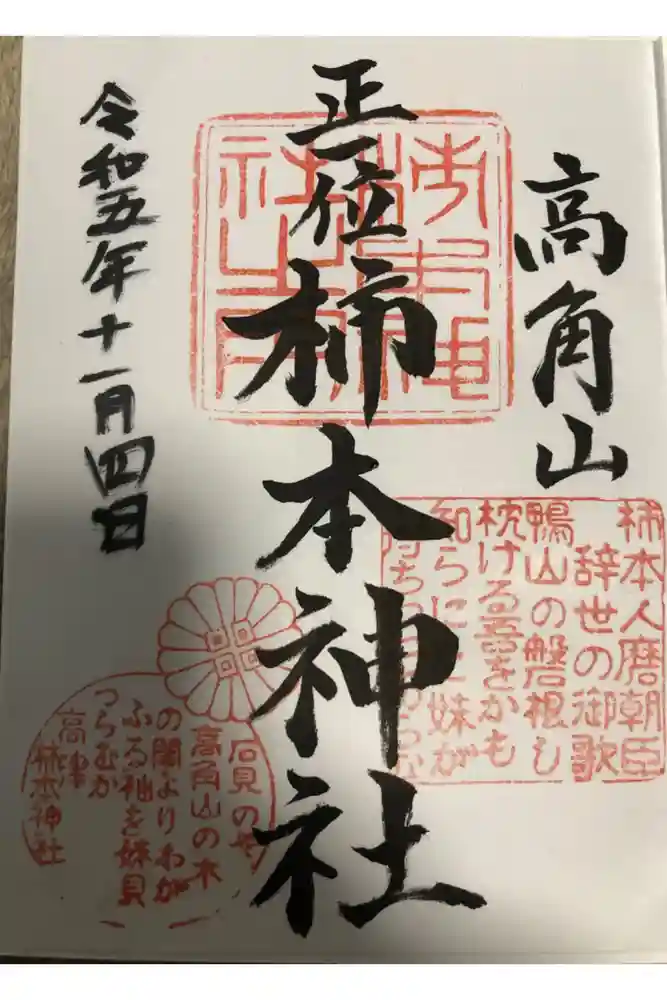 高角山
正一位
柿本神社
令和五年十一月四日
柿本人麿朝臣
辞世の御歌
鴨山の磐根し
枕ける吾をかも
知らに 妹が
石見の
高角山の木
の間よりわが
ふる袖を妹見
つらむか
高津
柿本神社